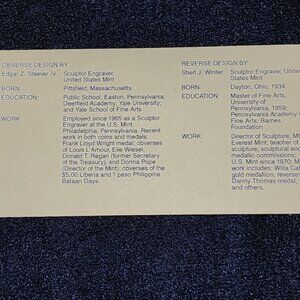 OBVERSE DESIGN BY
Edgar Z. Steever IV Sculptor Engraver,
United States Mint
BORN: Pittsfield, Massachusetts
EDUCATION: Public School, Easton, Pennsylvania;
Deerfield Academy; Yale University;
and Yale School of Fine Arts
WORK: Employed since 1965 as a Sculptor
Engraver at the U.S. Mint,
Philadelphia, Pennsylvania. Recent
work in both coins and medals:
Frank Lloyd Wright medal; obverses
of Louis L'Amour, Elie Wiesel,
Donald T. Regan (former Secretary
of the Treasury), and Donna Pope
(Director of the Mint); obverses of the
$5.00 Liberia and 1 peso Philippine
Bataan Days
REVERSE DESIGN BY
Sherl J. Winter Sculptor Engraver, United
States Mint
BORN: Dayton, Ohio, 1934
EDUCATION: Master of Fine Arts,
University of
Pennsylvania, 1959;
Pennsylvania Academy
Fine Arts; Barnes
Foundation
WORK: Director of Sculpture, M
Everest Mint; teacher of
sculpture; sculptural and
medallic commissions;
U.S. Mint since 1970; M
work includes: Willa Cat
gold medallion, reverses
Danny Thomas medal,
and others.